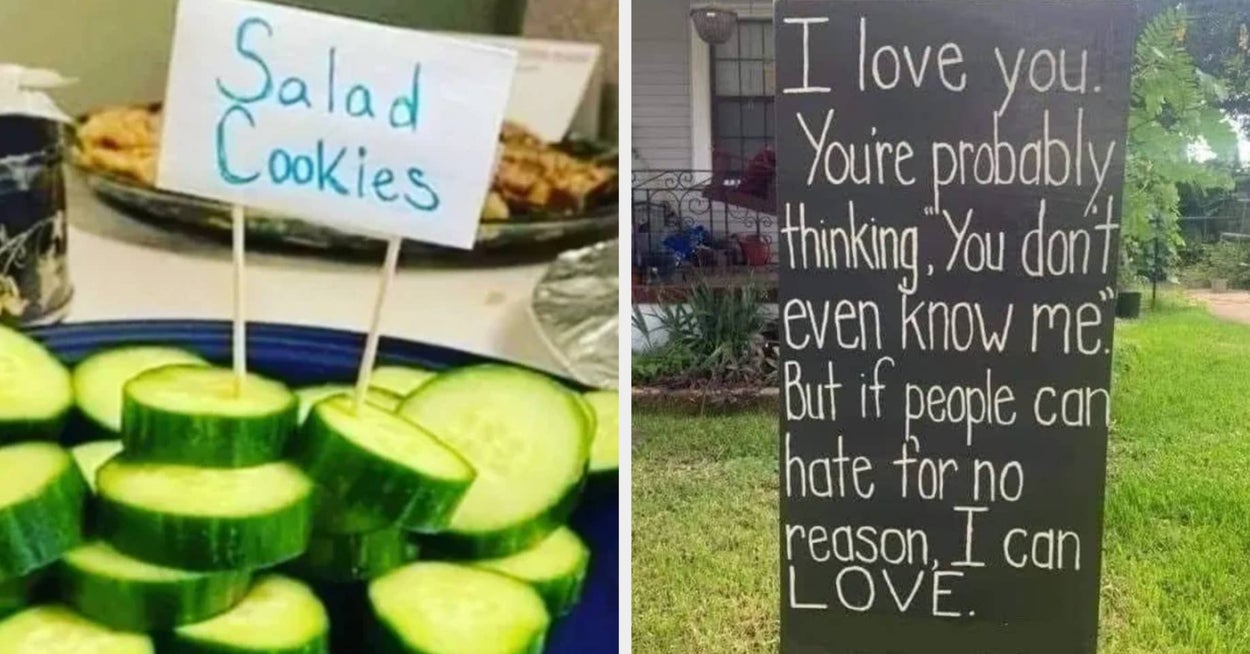 Salad
Cookies
I love you.
You're probably
thinking, "You don't
even know me."
But if people can
hate for no
reason, I can
LOVE.